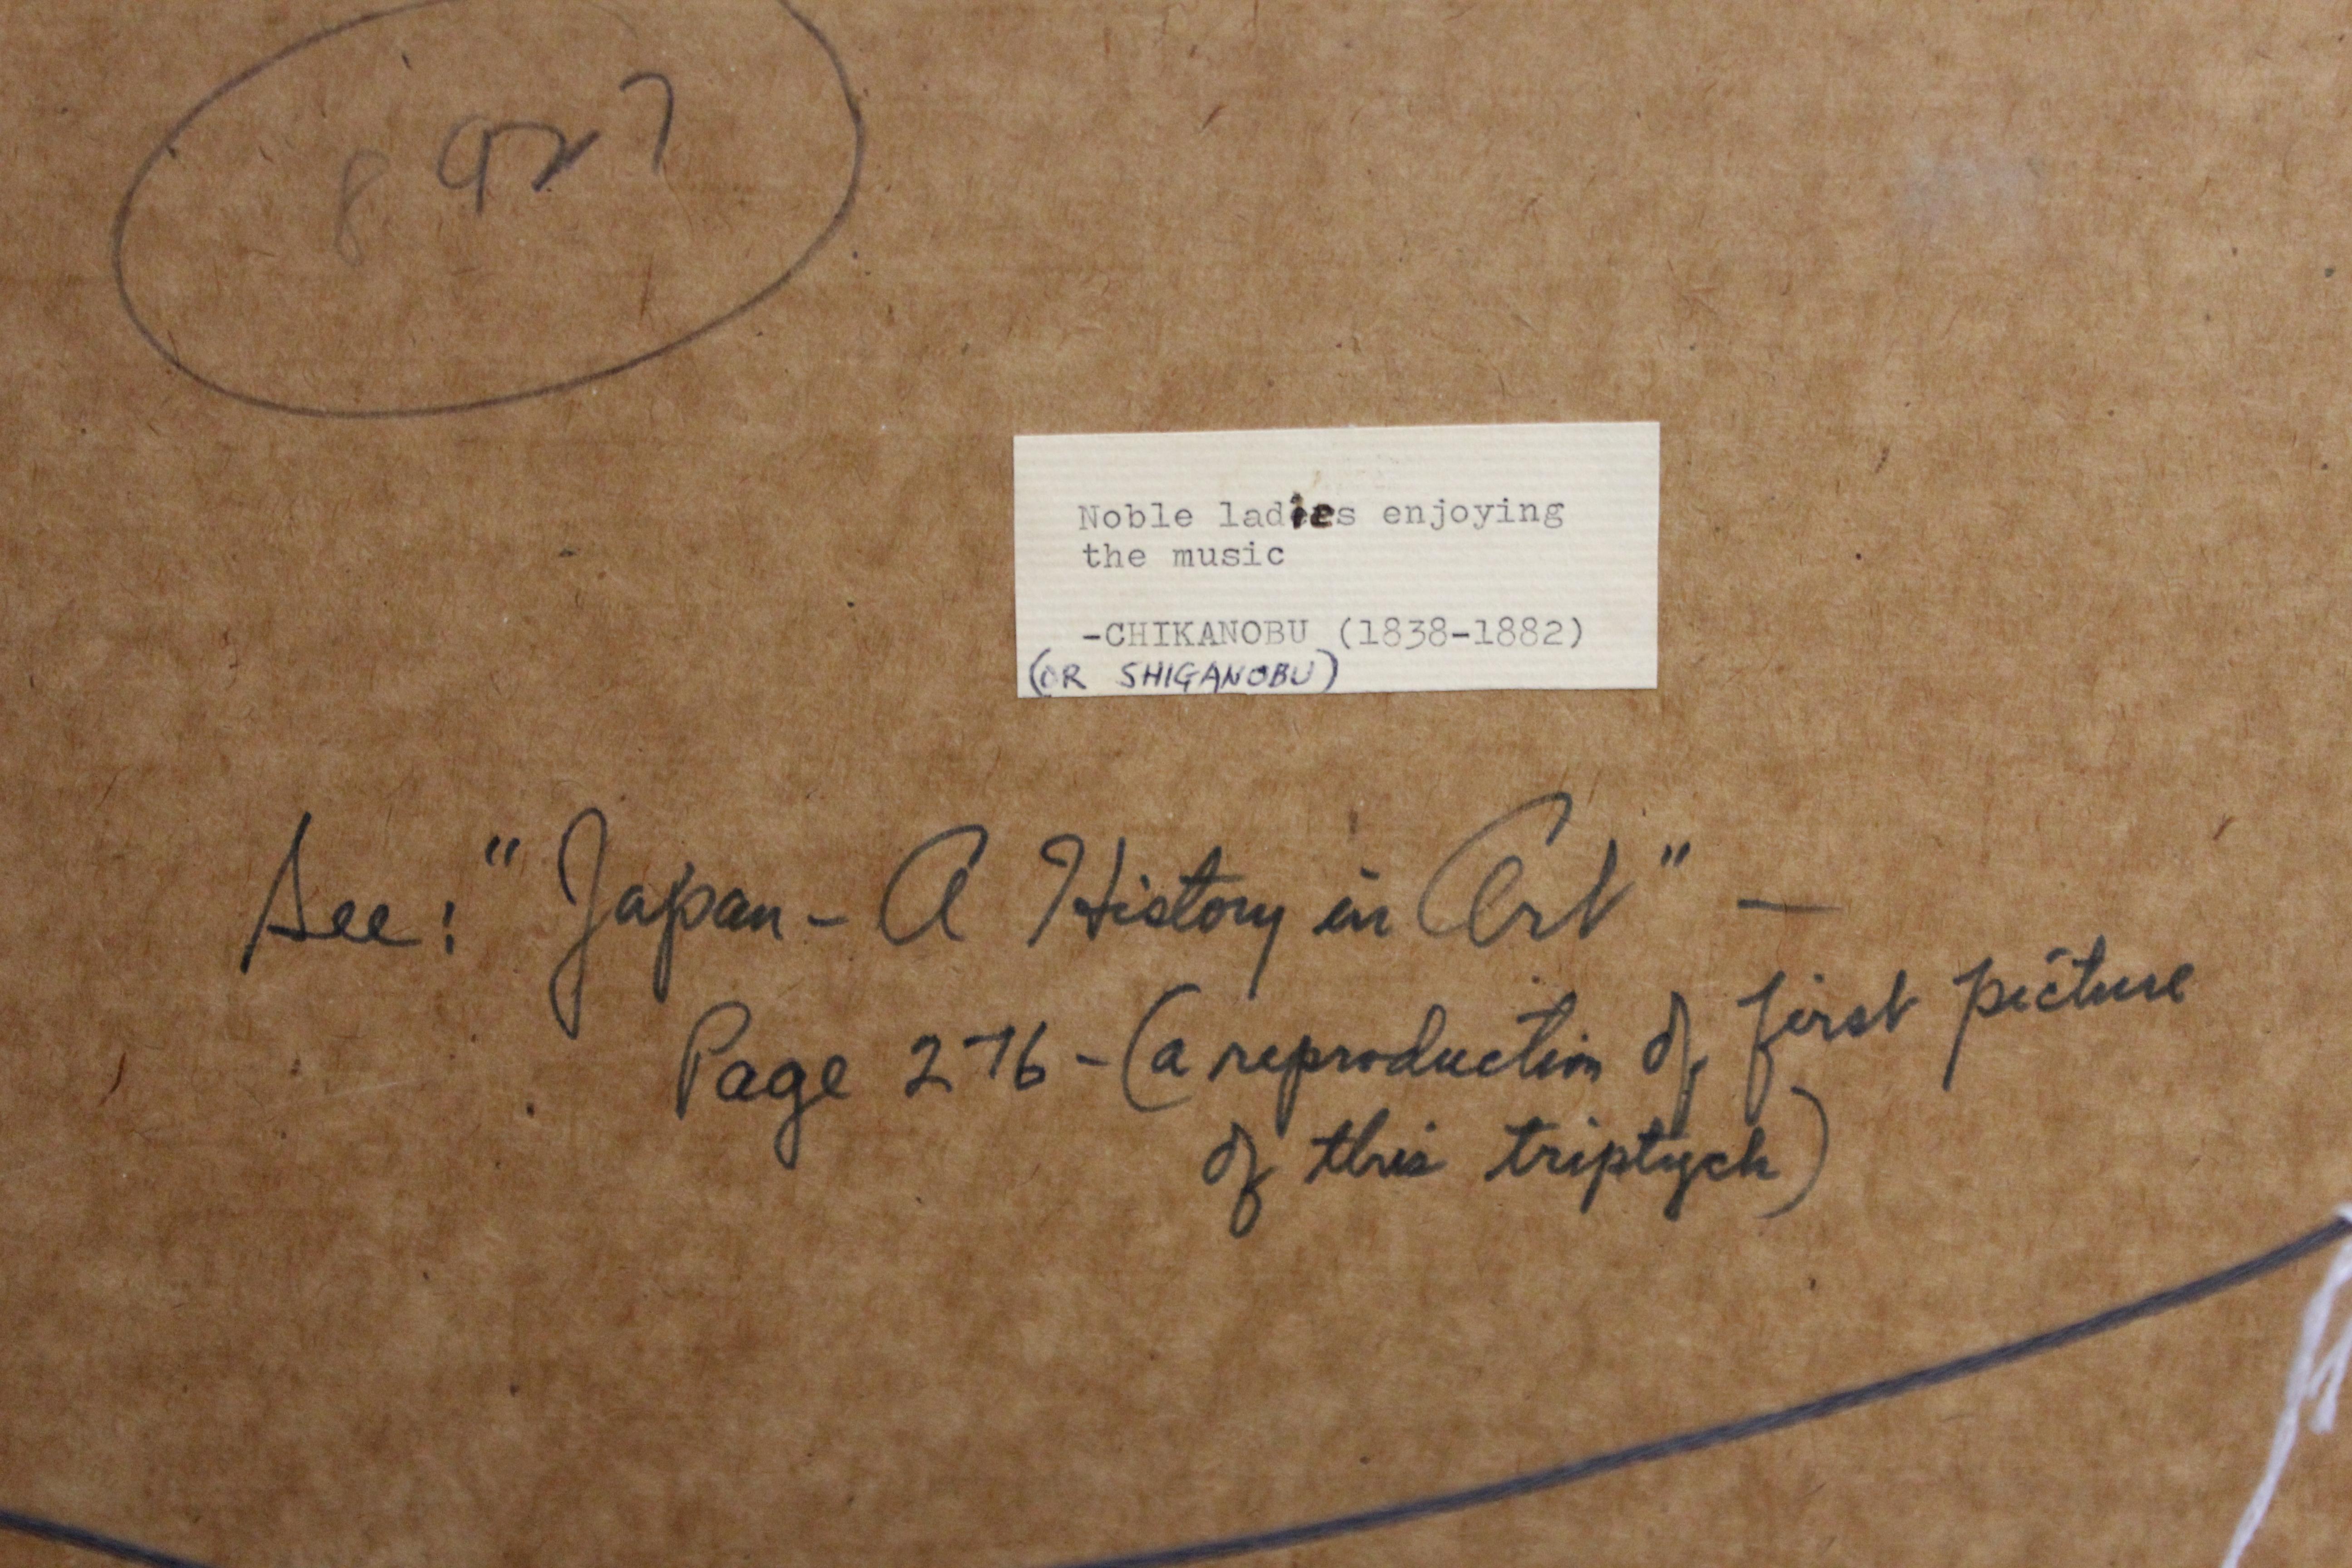 Noble ladies enjoying
the music
-CHIKANOBU (1838-1882)
(OR SHIGANOBU)
See: "Japan - A History in Art" —
Page 276 - (a reproduction of first picture
of this triptych)